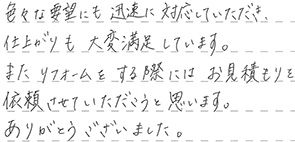 色々な要望にも迅速に対応していただき、
仕上がりも大変満足しています。
またリフォームをする際にはお見積もりを
依頼させていただこうと思います。
ありがとうございました。